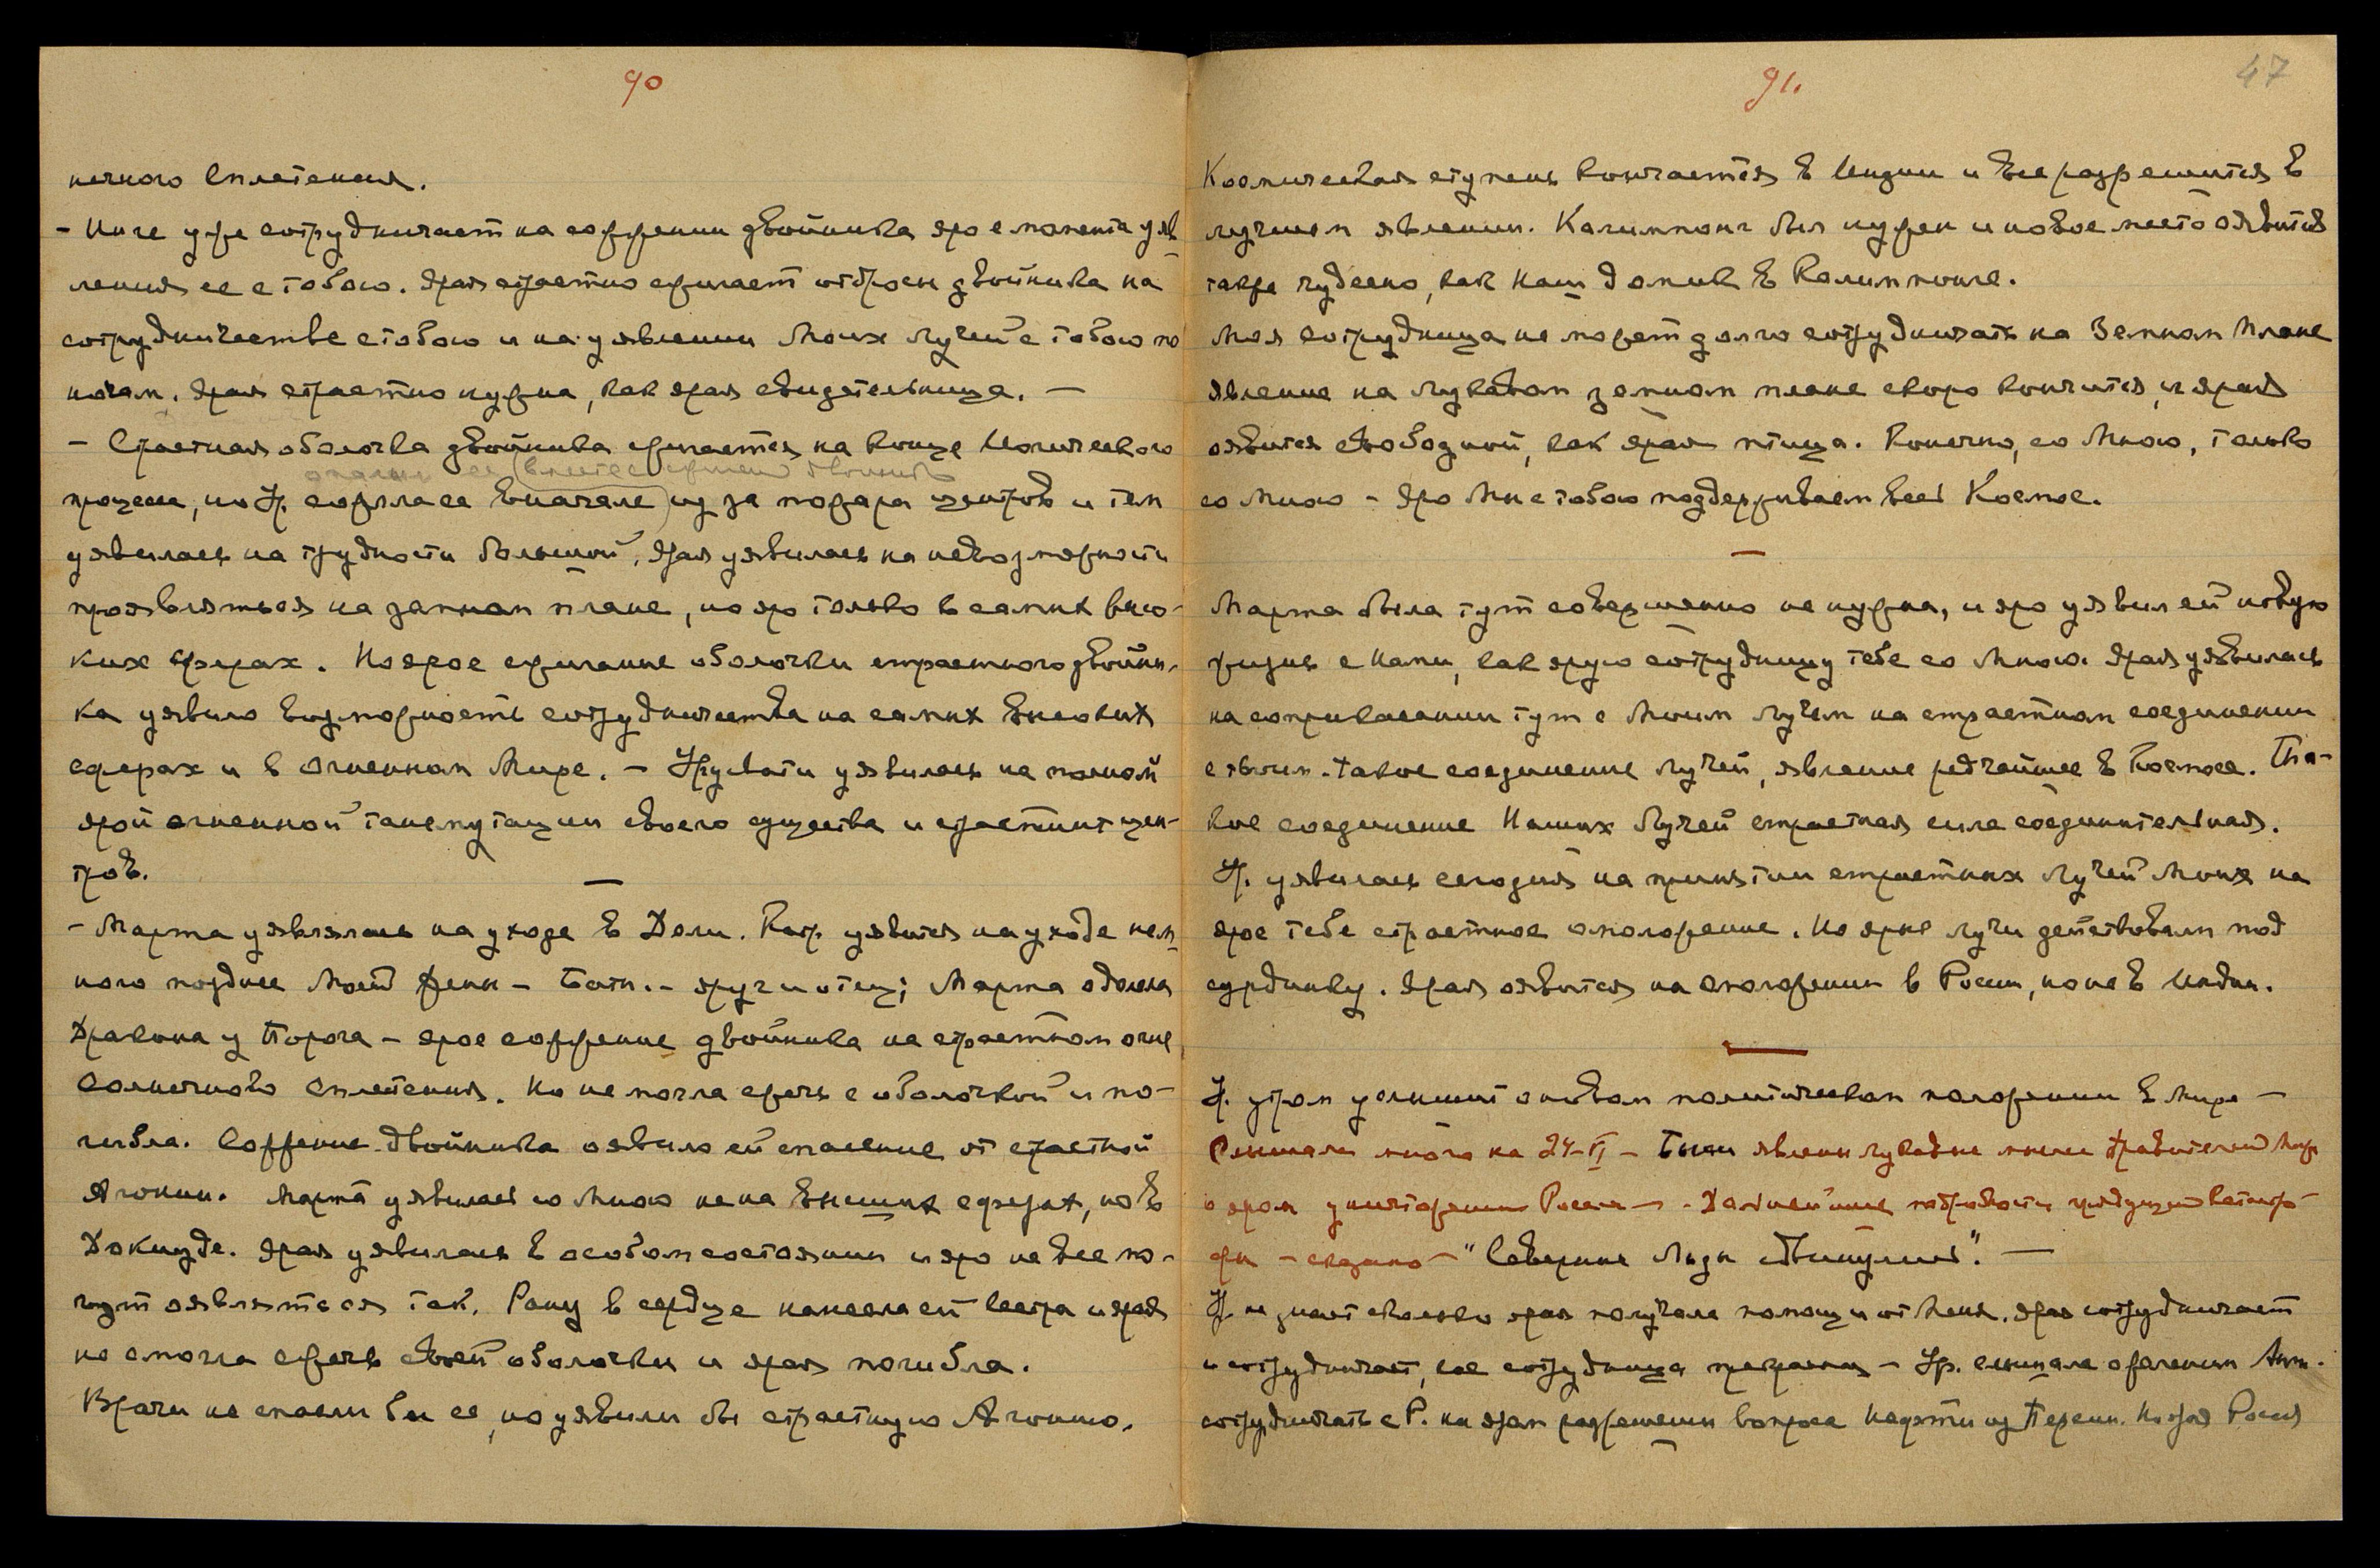 90
нечного Сплетения.
- Ныне уже сотрудничает на сожжении двойника яро с момента уяв
ления ее с тобою. Ярая страстно сжигает отбросы двойника на
сотрудничестве с тобою и на уявлении Моих Лучей с тобою по
ночам. Ярая страстно нужна, как ярая свидетельница. —
- Страстная оболочка двойника сжигается на конце Иогического
опалив ее (вместе сжегши двойник
процесса, но У. сожгла ее вначале) из за пожара центров и тем
уявилась на трудности большой. Ярая уявилась на невозможности
проявляться на земном плане, но яро только в самых высо-
ких сферах. Но ярое сжигание оболочки страстного двойни-
ка уявило возможность сотрудничества на самых высоких
сферах и в Огненном Мире. - Урусвати уявилась на полной
ярой огненной трансмутации своего существа и страстных цен-
тров.
—
- Марта уявлялась на уходе в Дели. Кат. уявится на уходе нем
ного позднее Моей Жены - Бати. - друг и отец; Марта одолела
Дракона у Порога - ярое сожжение двойника на страстном огне
Солнечного Сплетения. Но не могла сжечь с оболочкой и по-
гибла. Сожжение двойника оявило ей спасение от страстной
Агонии. Марта уявилась со Мною не на высших сферах, но в
Докиуде. Ярая уявилась в особом состоянии и яро не все мо-
гут оявляться так. Рану в сердце нанесла ей сестра и ярая
не смогла сжечь своей оболочки и ярая погибла.
Врачи не спасли бы ее, но уявили бы страстную Агонию.
91.
47
Космическая ступень кончается в Индии и все разрешится в
лучшем явлении. Калимпонг был нужен и новое место оявится
также чудесно, как Наш домик в Калимпонге.
Моя сотрудница не может долго сотрудничать на Земном Плане
явление на лукавом земном плане скоро кончится, и ярая
оявится свободной, как ярая птица. Конечно, со Мною, только
со Мною - Яро Мы с тобою поддерживаем весь Космос.
—
Марта была тут совершенно не нужна, и яро уявил ей новую
жизнь с Нами, как ярую сотрудницу тебе со Мною. Ярая уявилась
на соприкасании тут с Моим Лучем на страстном соединении
с твоим. Такое соединение Лучей, явление редчайшее в Космосе. Та-
кое соединение Наших Лучей страстная сила соединительная.
У. уявилась сегодня на принятии страстных Лучей Моих на
ярое тебе страстное омоложение. Но яркие лучи действовали под
сурдинку. Ярая оявится на омоложении в России, но не в Индии.
—
У. утром услышит о новом политическом положении в мире —
Слышала много на 24-VI - Были явлены лукавые мысли Правителей Мира
о яром уничтожении России —. Дальнейшие подробности грядущей катастро-
фы - сказано - "Северные Льды двинулись". —
У. не знает сколько ярая получала помощи от Меня. Ярая сотрудничает
и сотрудничает, как сотрудница прекрасная - Ур. слышала о желании Анг.
сотрудничать с Р. на яром разрешении вопроса Нефти из Персии. Но ярая Россия